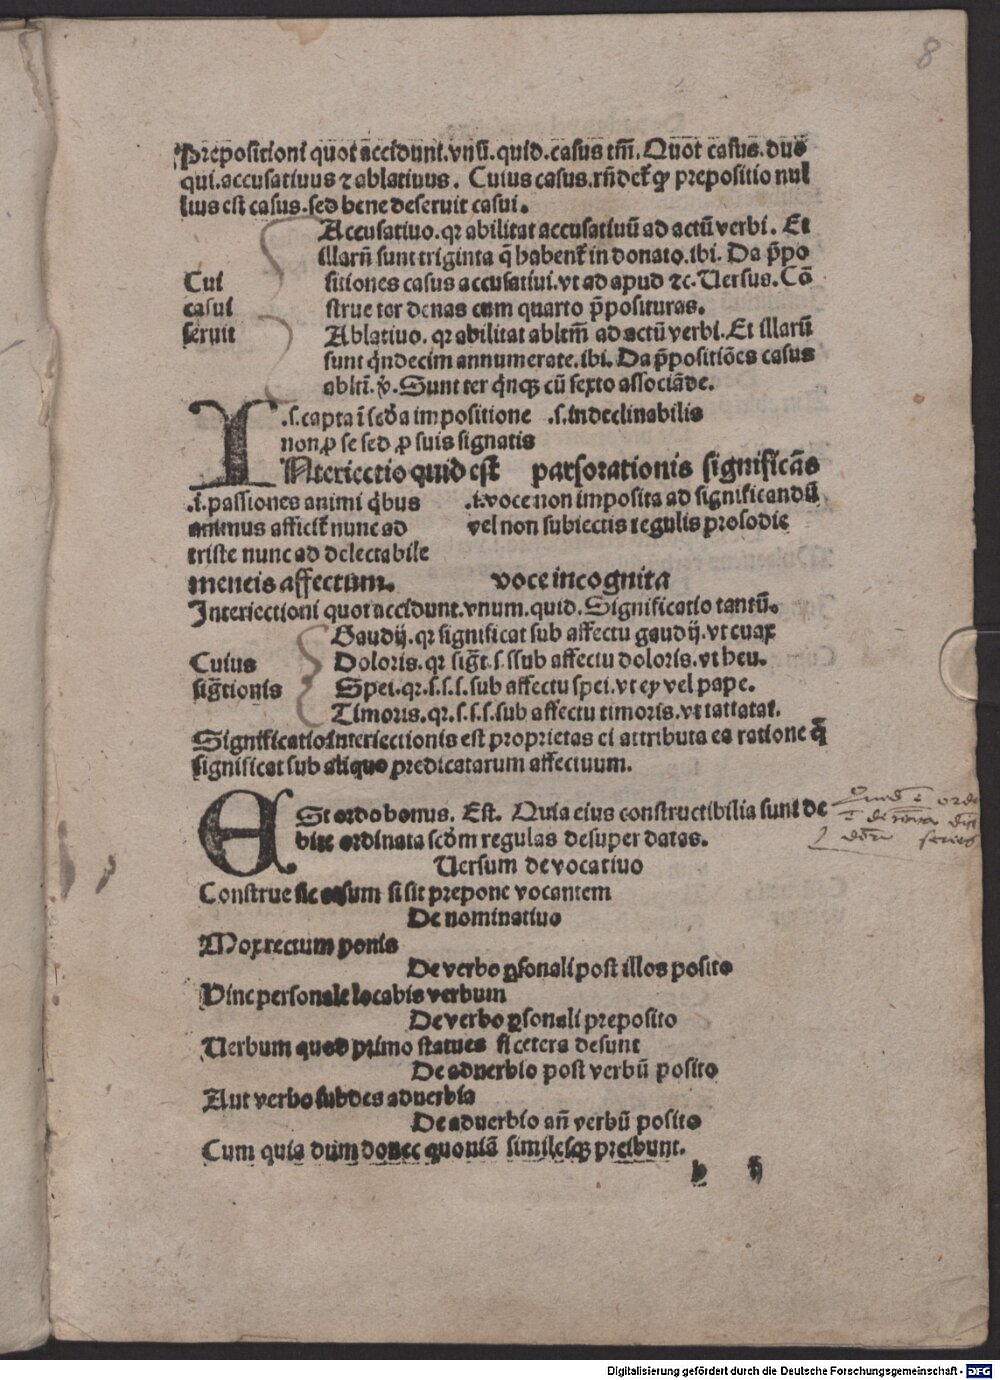 8
Prepositioni quot accidunt. vnū. quid. casus tm̄. Quot casus. duo
qui. accusatiuus ⁊ ablatiuus. Cuius casus. rn̄det̄ ꝙ prepositio nul
lius est casus. sed bene deseruit casui.
Accusatiuo. qꝛ abilitat accusatiuū ad actū verbi. Et
illarū sunt triginta q̄ habent̄ in donato. ibi. Da p̄po
Cui sitiones casus accusatiui. vt ad apud ⁊c. Uersus. Cō
casui strue ter denas cum quarto p̄posituras.
seruit Ablatiuo. qꝛ abilitat abltm̄ ad actū verbi. Et illarū
sunt q̇ndecim annumerate. ibi. Da p̄positiōes casus
ablti. v̇. Sunt ter q̇nqꝫ cū sexto associāde.
.s. capta ī scd̄a impositione .s. indeclinabilis
non ꝑ se sed ꝑ suis signatis
INteriectio quid est parsorationis significās
.i. passiones animi q̇bus .i. voce non imposita ad significandū
animus afficit̄ nunc ad vel non subiectis regulis prosodie
triste nunc ad delectabile
mencis affectum. voce incognita
Interiectioni quot accidunt. vnum. quid. Significatio tantū.
Gaudij. qꝛ significat sub affectu gaudij. vt euax
Cuius Doloris. qꝛ sigt̄. s. ssub affectu doloris. vt heu.
sigt̄ionis Spei. qꝛ. s. s. s. sub affectu spei. vt ey vel pape.
Timoris. qꝛ. s. s. s. sub affectu timoris. vt tattatat.
Significatio interiectionis est proprietas ei attributa ea ratione q̄
significat sub aliquo predicatarum affectuum.
ESt ordo bonus. Est. Quia eius constructibilia sunt de
bite ordinata scd̄m regulas desuper datas.
Uersum de vocatiuo
Construe sic casum si sit prepone vocantem
De nominatiuo
Mox rectum ponis
De verbo ꝑsonali post illos posito
Hinc personale locabis verbum
De verbo ꝑsonali preposito
Uerbum quod primo statues si cetera desunt
De aduerbio post verbū posito
Aut verbo subdes aduerbia
De aduerbio an̄ verbū posito
Cum quia dum donec quoniā similesqꝫ preibunt.
b ij
Digitalisierung gefördert durch die Deutsche Forschungsgemeinschaft - DFG